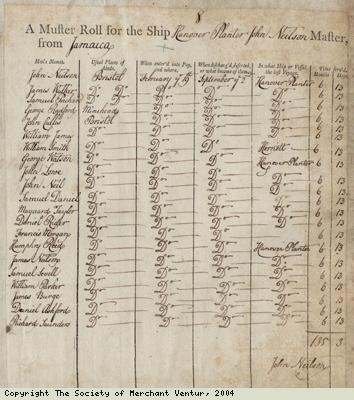 A Muster Roll for the Ship Hanover Planter John Neilson Master,
from Jamaica
Men's Names Usual Places of Abode When enter'd into Pay, and where When discharg'd, deserted, or what became of them In what Ship or Vessel the last Voyage Time Months Days
John Neilson Bristol February 7th September 7th Hanover Planter 6 13
James Walker Do Do Do Do 6 13
Samuel Do Do Do Do 6 13
George Bradford Minehead Do Do Do 6 13
John Bristol Do Do Do 6 13
William James Do Do Do Do 6 13
William Smith Do Do Do 6 13
George Watson Do Do Do Hanover Planter 6 13
John Lowe Do Do Do Do 6 13
John Neil Do Do Do Do 6 13
Samuel Daniel Do Do Do Do 6 13
Maynard Taylor Do Do Do Do 6 13
Daniel Do Do Do Do 6 13
Francis Morgan Do Do Do Do 6 13
Humphry Reed Do Do Do Hanover Planter 6 13
James Nelson Do Do Do Do 6 13
Samuel Do Do Do Do 6 13
William Do Do Do Do 6 13
James Burge Do Do Do Do 6 13
Daniel Ashford Do Do Do Do 6 13
Richard Saunders Do Do Do Do 6 13
135 3
John Neilson
Copyright The Society of Merchant Ventur, 2004